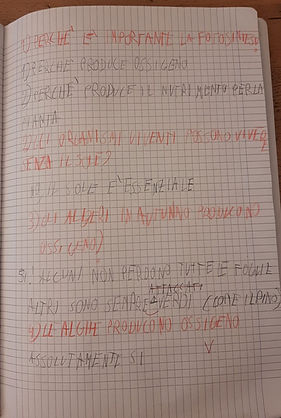 1) PERCHÈ È IMPORTANTE LA FOTOSINTESI
1) PERCHÈ PRODUCE OSSIGENO
2) PERCHÈ PRODUCE IL NUTRIMENTO PER LA
PIANTA
2) GLI ORGANISMI VIVENTI POSSONO VIVERE
SENZA IL SOLE?
IL SOLE E' ESSENZIALE
3) GLI ALBERI IN AUTUNNO PRODUCONO
OSSIGENO?
SI. ALCUNI NON PERDONO TUTTE LE FOGLIE
ATTACCATI
ALTRI SONO SEMPREVERDI (COME IL PINO)
4) LE ALGHE PRODUCONO OSSIGENO
ASSOLUTAMENTE SI